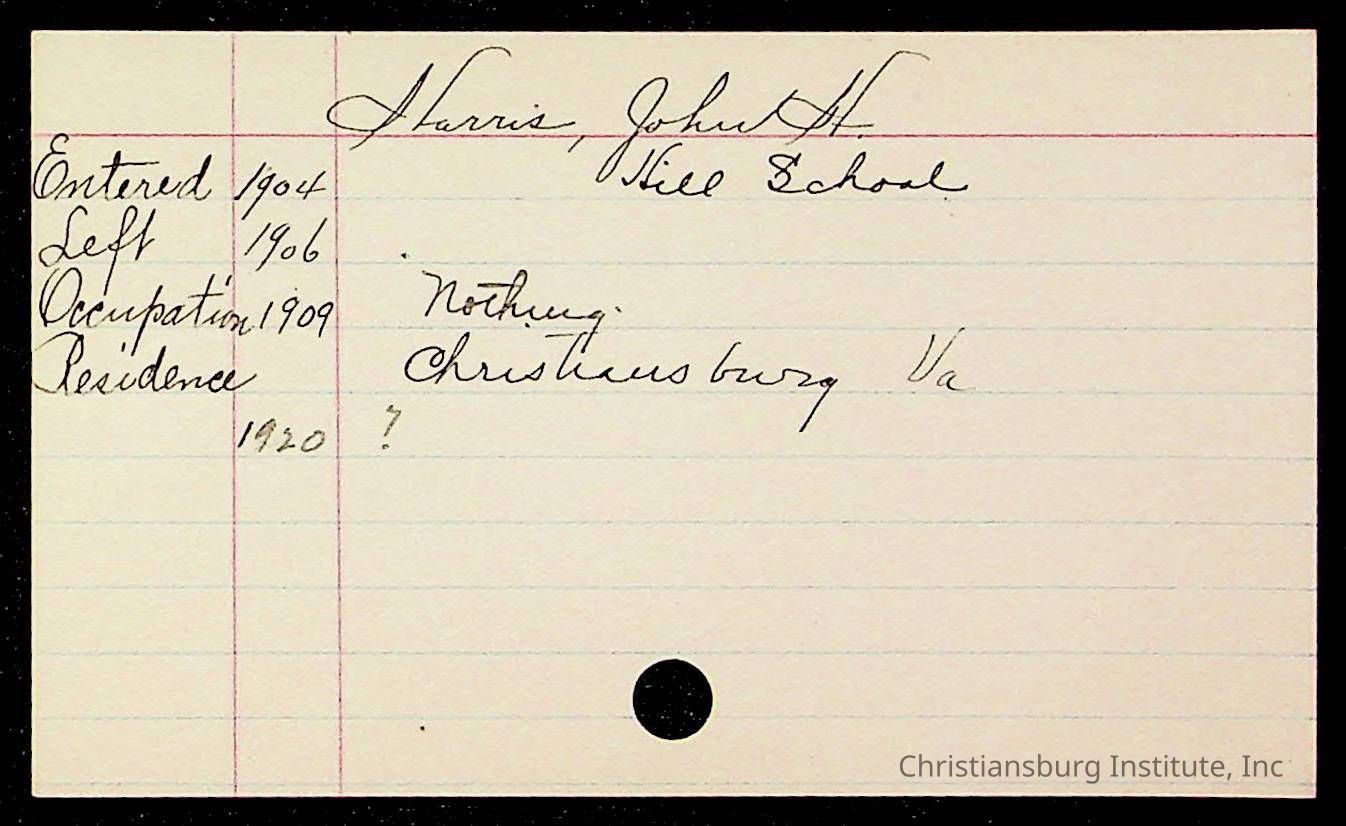 Harris, John H.
Entered 1904 Hill School
Left 1906
Occupation 1909 Nothing.
Residence Christiansburg Va
1920 ?
Christiansburg Institute, Inc